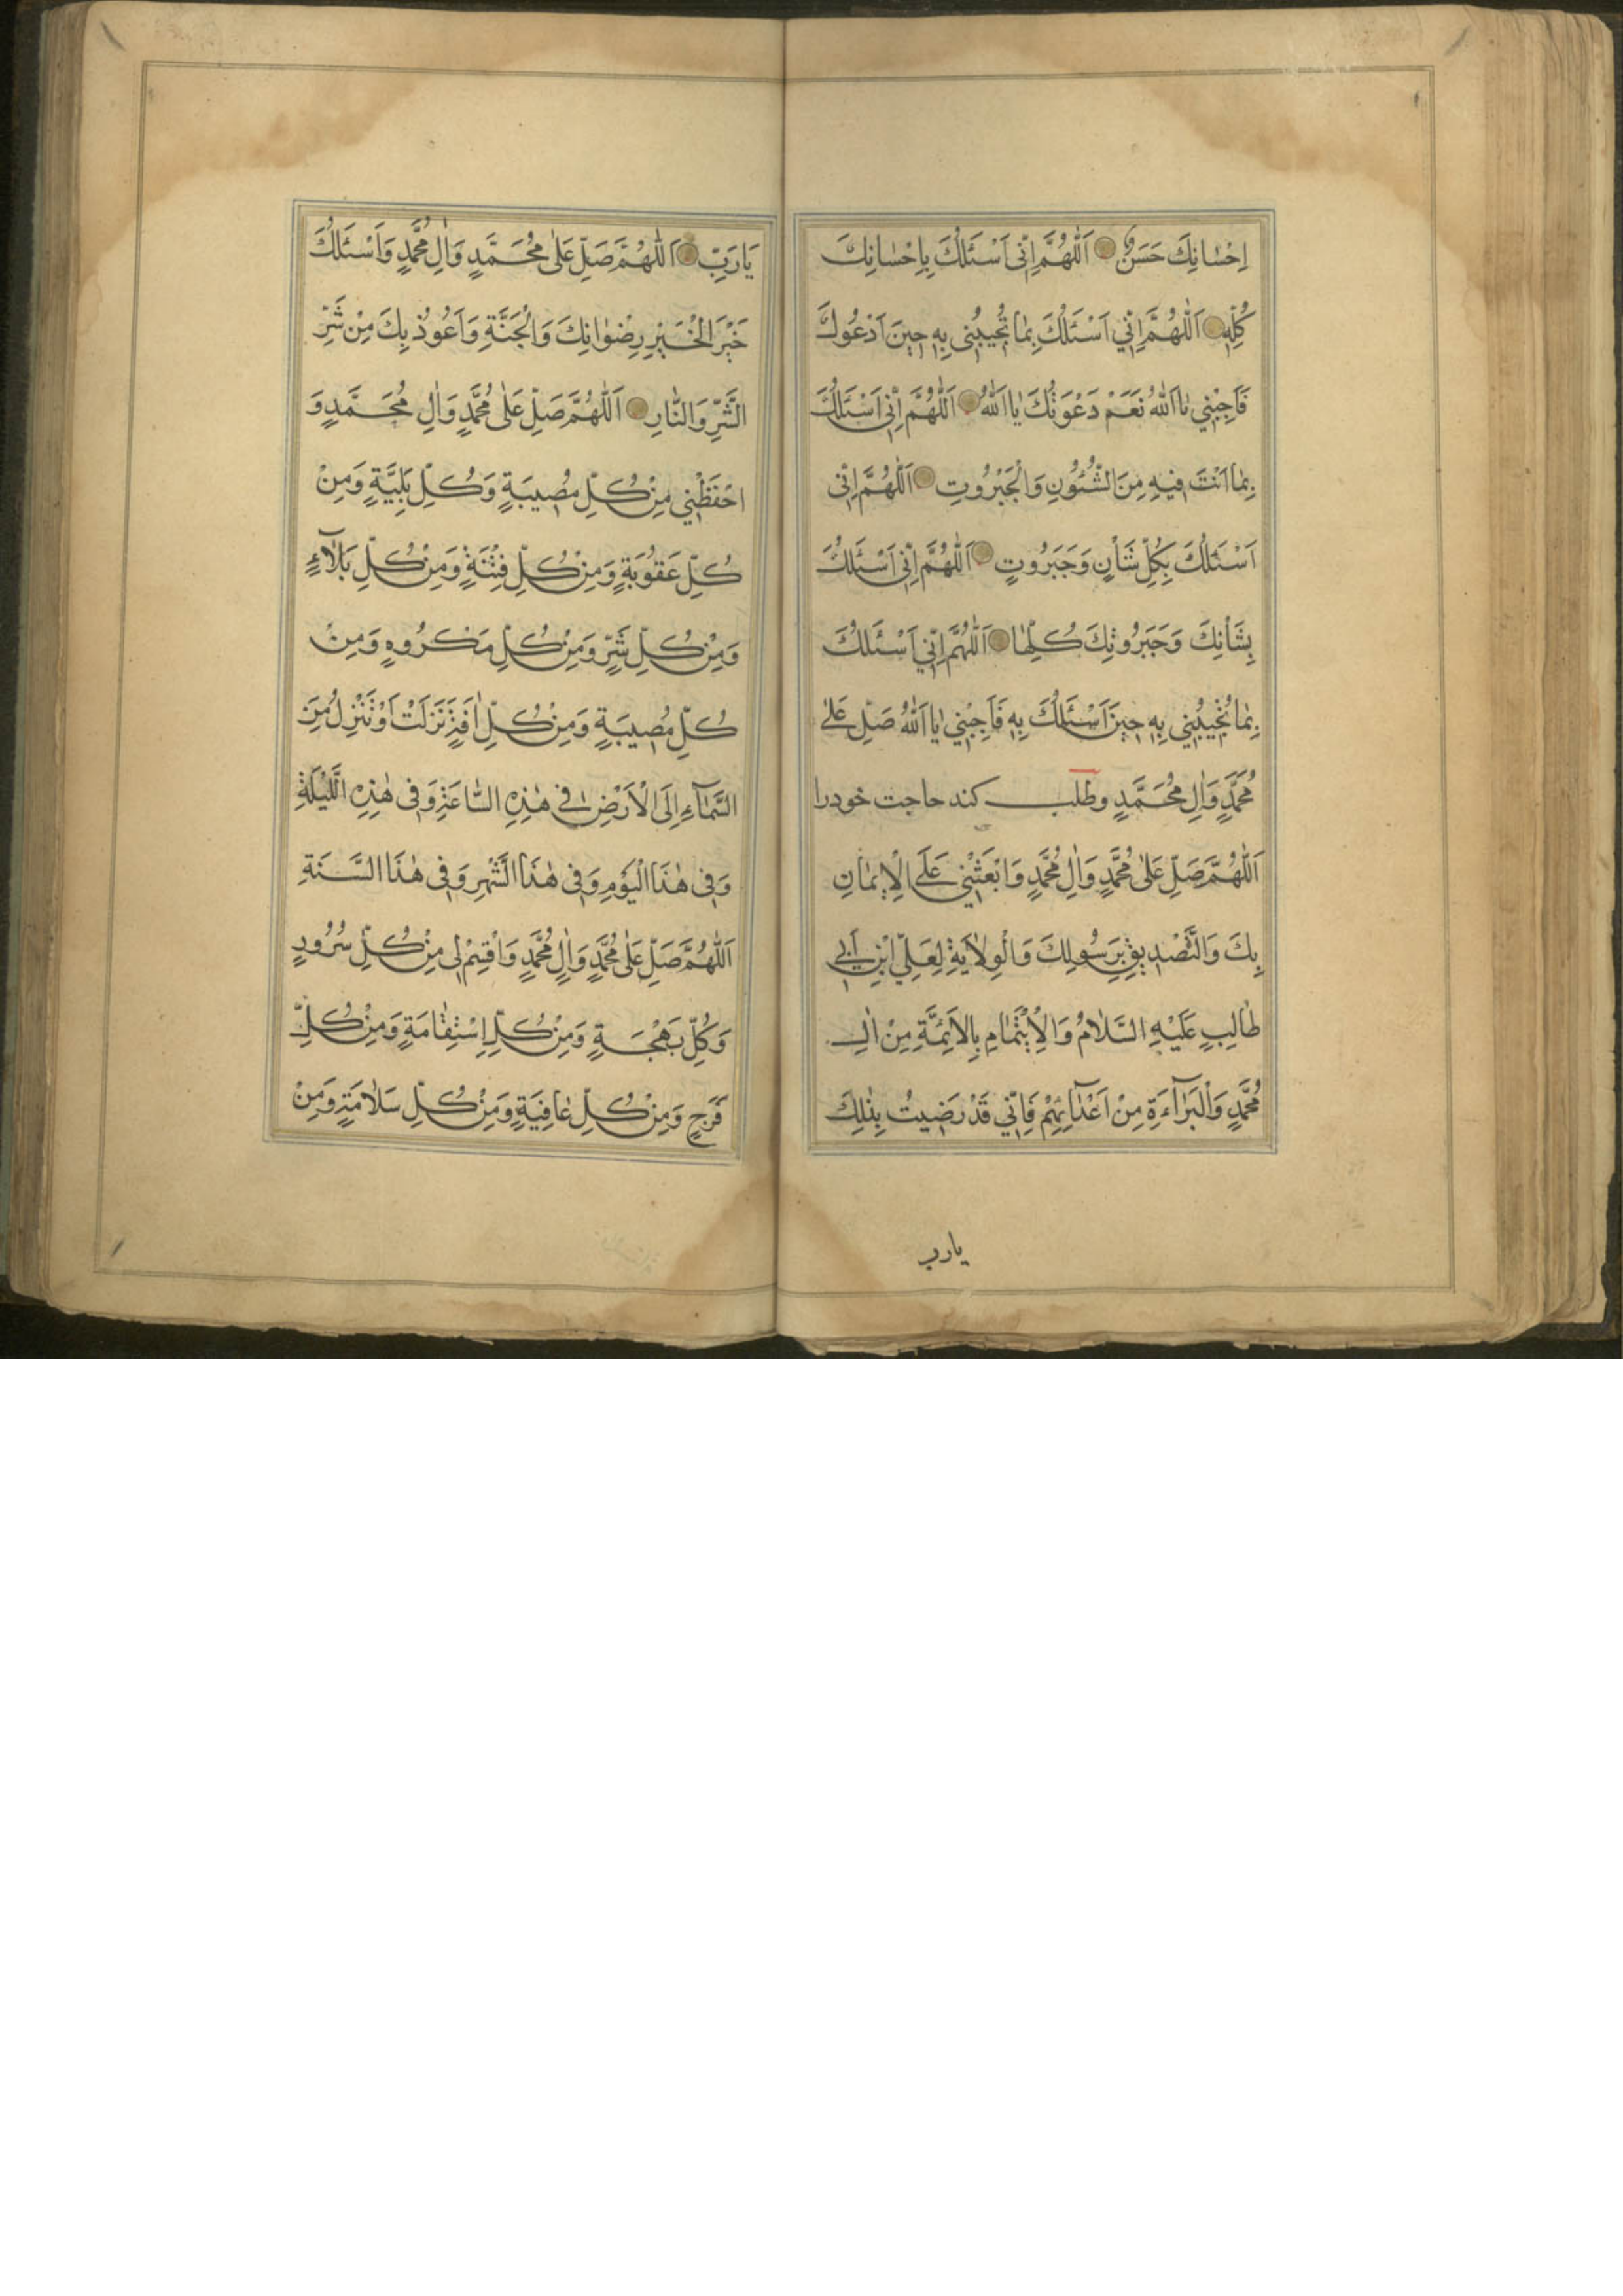 اِحْسٰانِكَ حَسَنٌ اَللّٰهُمَّ اِنّى اَسْئَلُكَ بِاِحْسٰانِكَ
كُلِّهِ اَللّٰهُمَّ اِنّي اَسْئَلُكَ بِمٰا تُجيبُنى بِهِ حينَ اَدْعُوكَ
فَاَجِبْنِي يٰا اَللّٰهُ نَعَمْ دَعَوْتُكَ يٰا اَللّٰهُ اَللّٰهُمَّ اِنّى اَسْئَلُكَ
بِمٰا اَنْتَ فيهِ مِنَ الشُّئُوْنِ وَالْجَبَرُوتِ اَللّٰهُمَّ اِنّى
اَسْئَلُكَ بِكُلِّ شَاْنٍ وَجَبَرُوتٍ اَللّٰهُمَّ اِنّى اَسْئَلُكَ
بِشَاْنِكَ وَجَبَرُوتِكَ كُلِّهٰا اَللّٰهُمَّ اِنّي اَسْئَلُكَ
بِمٰا تُجيبُني بِهِ حينَ اَسْئَلُكَ بِهِ فَاَجِبْني يٰا اَللّٰهُ صَلِّ عَلىٰ
مُحَمَّدٍ وَاٰلِ مُحَمَّدٍ وطلب كند حاجت خودرا
اَللّٰهُمَّ صَلِّ عَلىٰ مُحَمَّدٍ وَاٰلِ مُحَمَّدٍ وَابْعَثْنِي عَلَى الْاِيمٰانِ
بِكَ وَالتَّصْديقِ بِرَسُولِكَ وَالْوِلاٰيَةِ لِعَلِيّ ابْنِ اَبي
طٰالِبٍ عَلَيْهِ السَّلاٰمُ وَالْاِئْتِمٰامِ بِالْاَئِمَّةِ مِنْ اٰلِ
مُحَمَّدٍ وَالْبَرٰآءَةِ مِنْ اَعْدٰآئِهِمْ فَاِنّي قَدْ رَضيتُ بِذٰلِكَ
يارب
يٰا رَبِّ اَللّٰهُمَّ صَلِّ عَلىٰ مُحَمَّدٍ وَاٰلِ مُحَمَّدٍ وَاَسْئَلُكَ
خَيْرَ الْخَيْرِ رِضْوٰانِكَ وَالْجَنَّةِ وَاَعُوذُ بِكَ مِنْ شَرِّ
الشَّرِّ وَالنّٰارِ اَللّٰهُمَّ صَلِّ عَلىٰ مُحَمَّدٍ وَاٰلِ مُحَمَّدٍ وَ
احْفَظْنِي مِنْ كُلِّ مُصيبَةٍ وَكُلِّ بَلِيَّةٍ وَمِنْ
كُلِّ عَقُوبَةٍ وَمِنْ كُلِّ فِتْنَةٍ وَمِنْ كُلِّ بَلاٰۤءٍ
وَمِنْ كُلِّ شَرٍّ وَمِنْ كُلِّ مَكْرُوهٍ وَمِنْ
كُلِّ مُصيبَةٍ وَمِنْ كُلِّ اٰفَةٍ نَزَلَتْ اَوْ تَنْزِلُ مِنَ
السَّمٰآءِ اِلَى الْاَرْضِ في هٰذِهِ السّٰاعَةِ وَفى هٰذِهِ اللَّيْلَةِ
وَفى هٰذَا الْيَوْمِ وَفى هٰذَا الشَّهْرِ وَفى هٰذَا السَّنَةِ
اَللّٰهُمَّ صَلِّ عَلىٰ مُحَمَّدٍ وَاٰلِ مُحَمَّدٍ وَاقْسِمْ لى مِنْ كُلِّ سُرُورٍ
وَكُلِّ بَهْجَةٍ وَمِنْ كُلِّ اِسْتِقٰامَةٍ وَمِنْ كُلِّ
فَرَجٍ وَمِنْ كُلِّ عٰافِيَةٍ وَمِنْ كُلِّ سَلاٰمَةٍ وَمِنْ